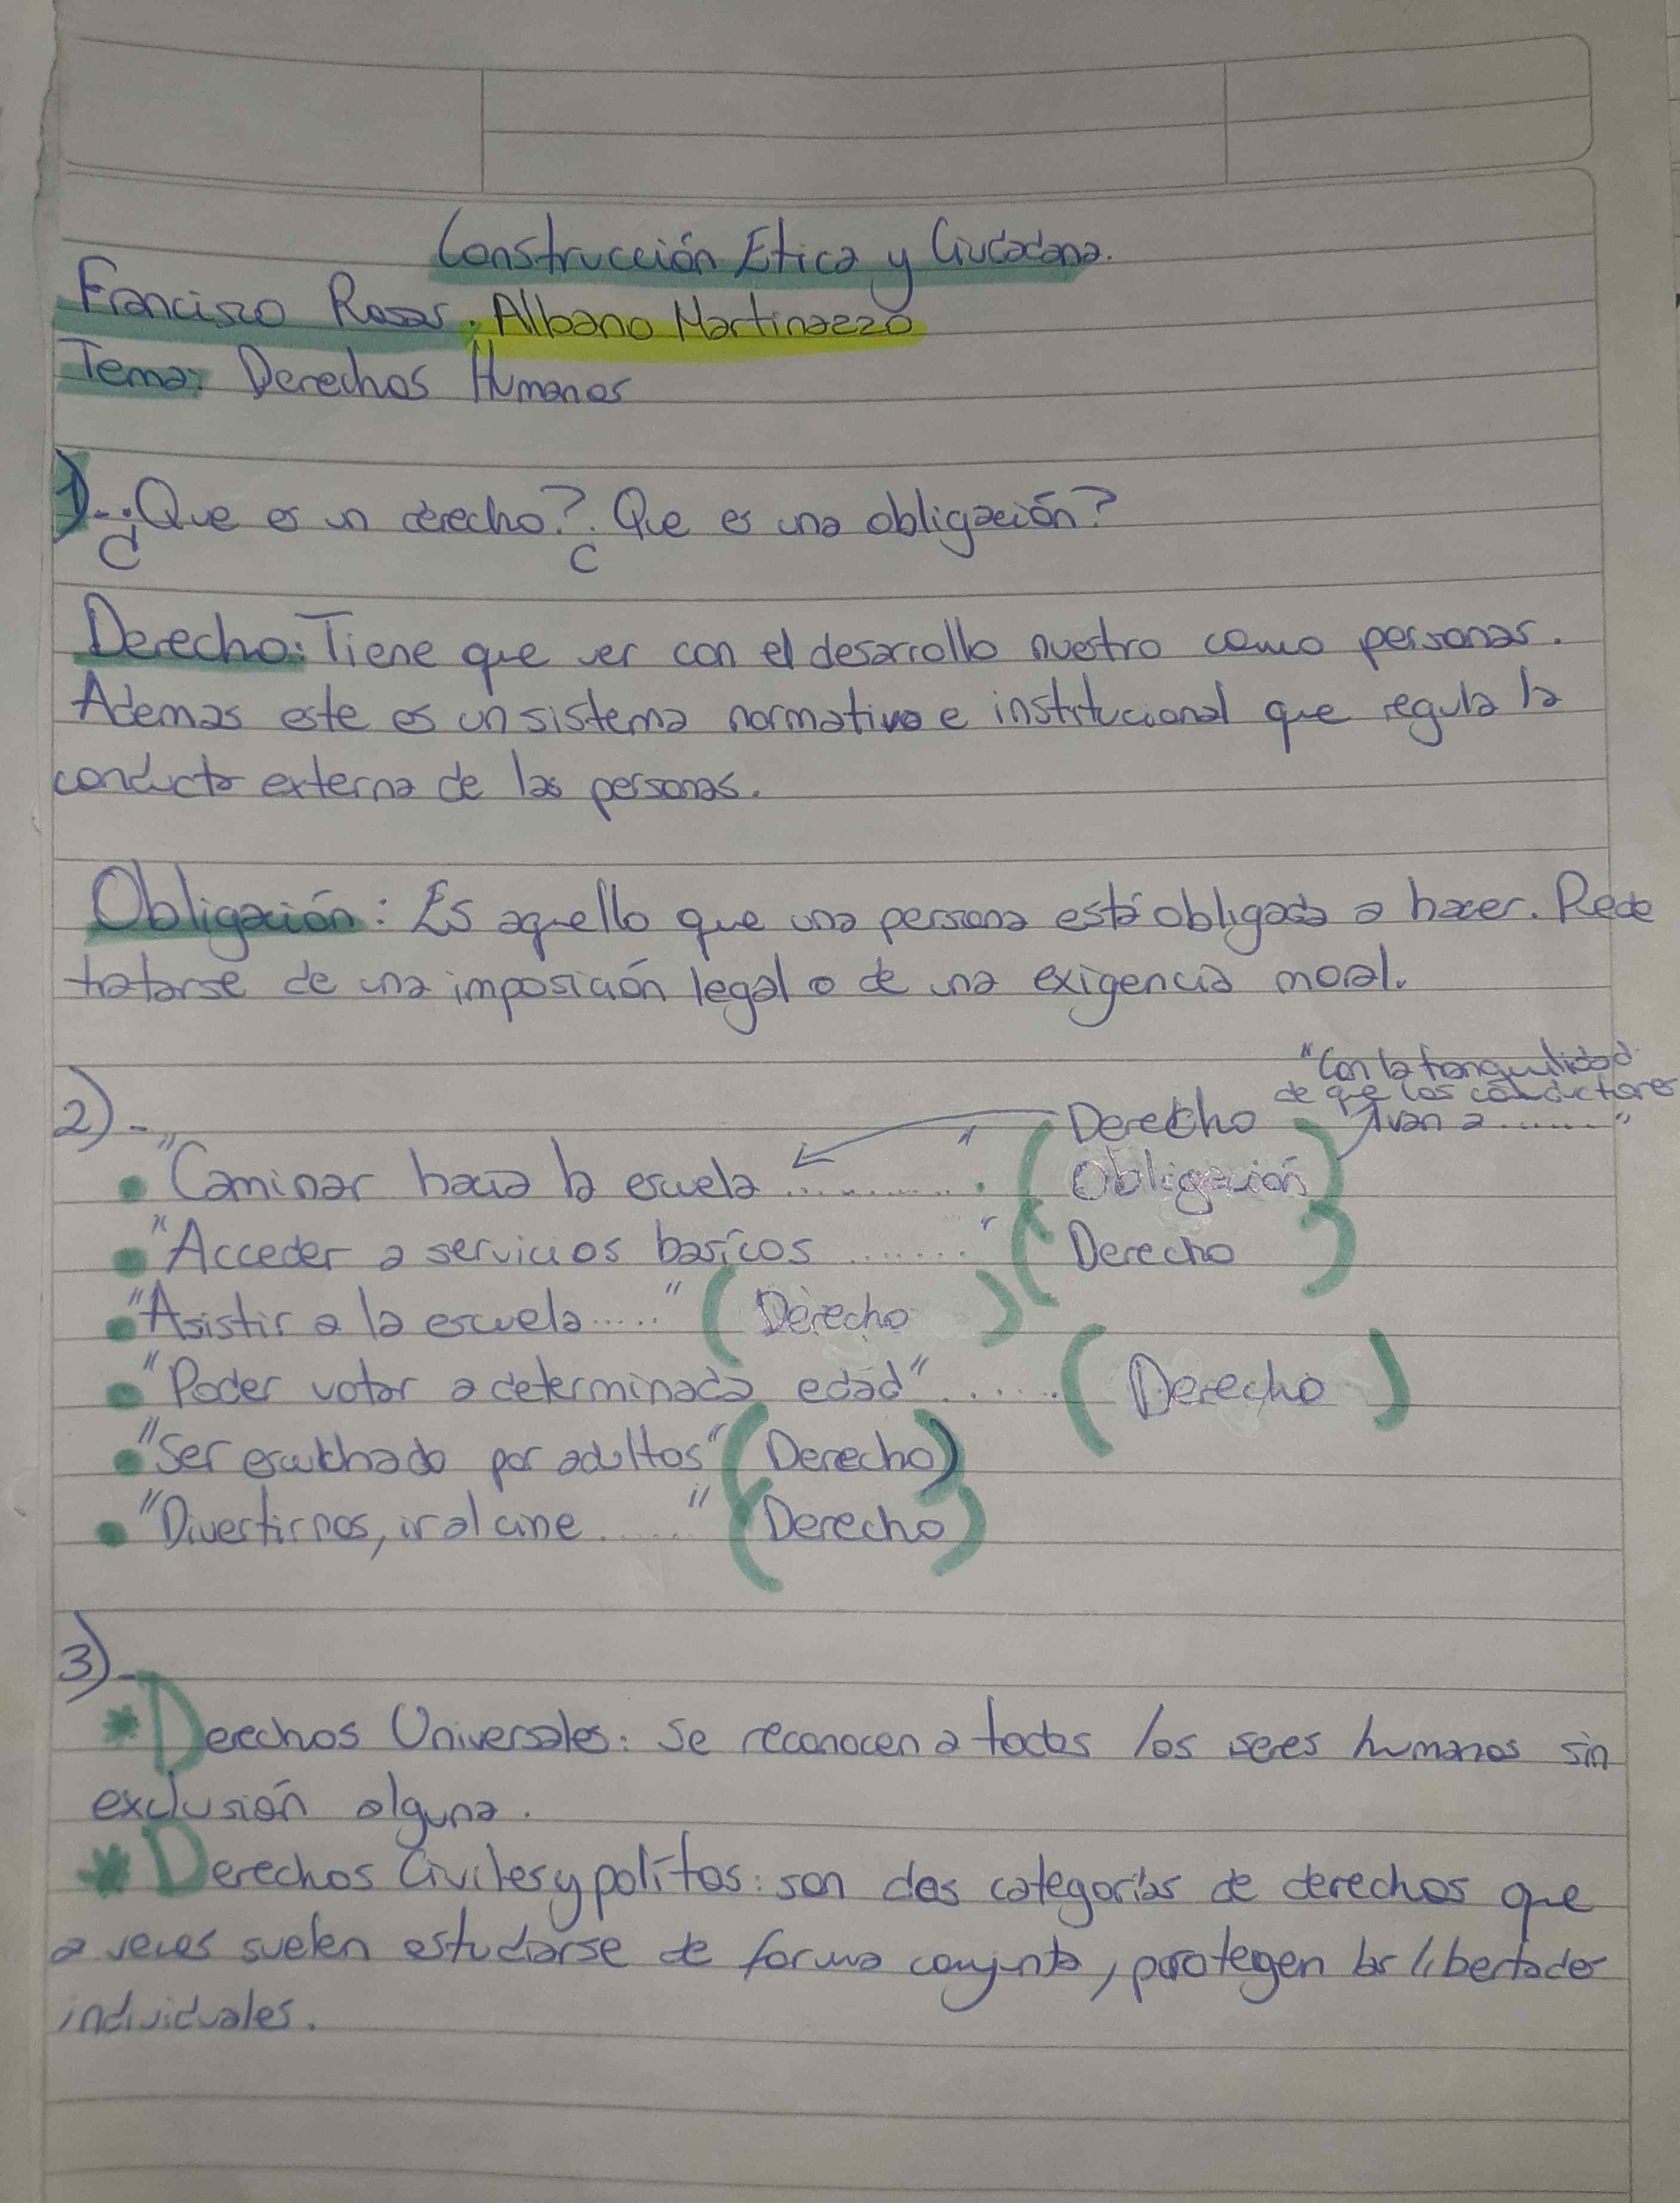 Construcción Etica y Ciudadana.
Francisco Rosas. Albano Martinazzo
Tema: Derechos Humanos
1)-¿Que es un derecho? ¿Que es una obligación?
Derecho: Tiene que ver con el desarrollo nuestro como personas.
Ademas este es un sistema normativo e institucional que regula la
conducta externa de las personas.
Obligación: Es aquello que una persona está obligada a hacer. Puede
tratarse de una imposición legal o de una exigencia moral.
"Con la tranquilidad
de que los conductores
van a ......"
2)-
"Caminar hacia la escuela ..........." (Derecho
Obligación)
"Acceder a servicios basícos ........" (Derecho)
"Asistir a la escuela ....." (Derecho)
"Poder votar a determinada edad" ...... (Derecho)
"Ser escuchado por adultos" (Derecho)
"Divertirnos, ir al cine ......" (Derecho)
3)-
* Derechos Universales: Se reconocen a todos los seres humanos sin
exclusión alguna.
* Derechos Civiles y polítos: son dos categorías de derechos que
a veces suelen estudiarse de forma conjunta, protegen las libertades
individuales.